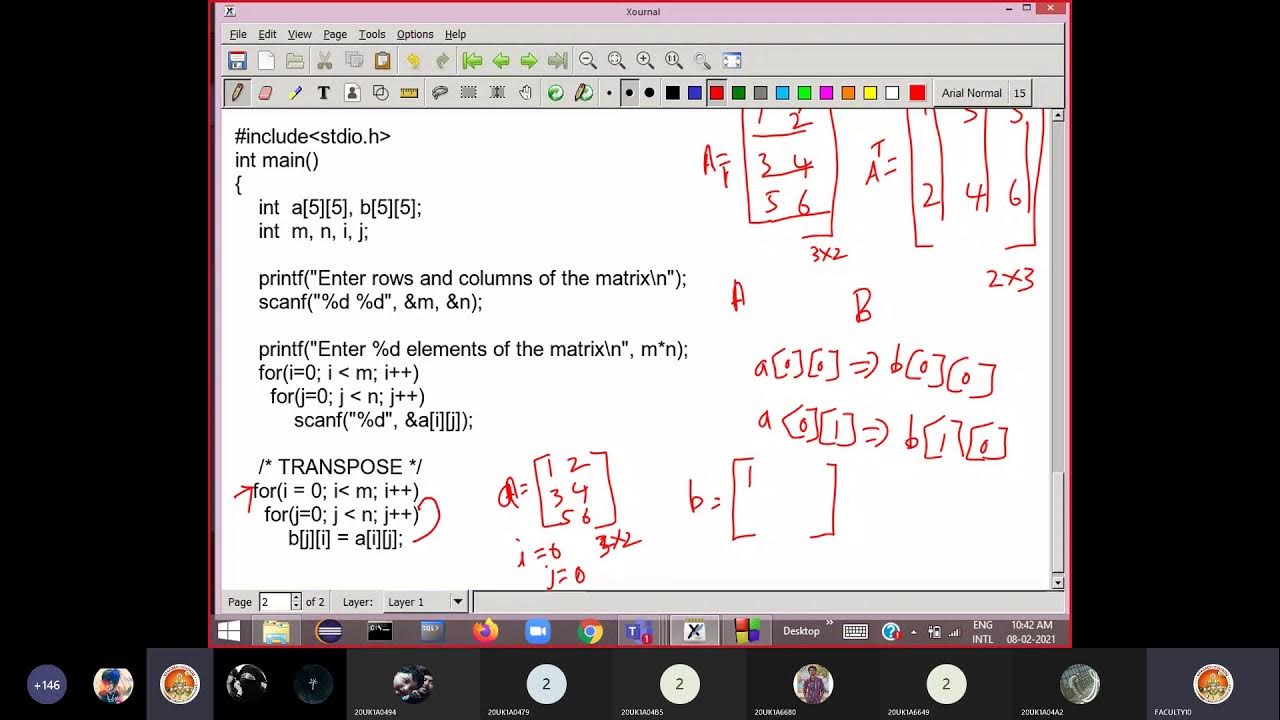 Xournal
File Edit View Page Tools Options Help
Arial Normal 15
#include<stdio.h>
int main()
{
int a[5][5], b[5][5];
int m, n, i, j;
printf("Enter rows and columns of the matrix\n");
scanf("%d %d", &m, &n);
printf("Enter %d elements of the matrix\n", m*n);
for(i=0; i < m; i++)
for(j=0; j < n; j++)
scanf("%d", &a[i][j]);
/* TRANSPOSE */
for(i = 0; i< m; i++)
for(j=0; j < n; j++)
b[j][i] = a[i][j];
1 2
A= 3 4
5 6
3x2
1 3 5
A^T=
2 4 6
2x3
A B
a[0][0] => b[0][0]
a[0][1] => b[1][0]
1 2
A= 3 4
5 6
3x2
i=0
j=0
b= 1
Page 2 of 2 Layer: Layer 1
Desktop
ENG
INTL
10:42 AM
08-02-2021
+146
2 2 2
20UK1A0494 20UK1A0479 20UK1A04B5 20UK1A6680 20UK1A6649 20UK1A04A2 FACULTY10